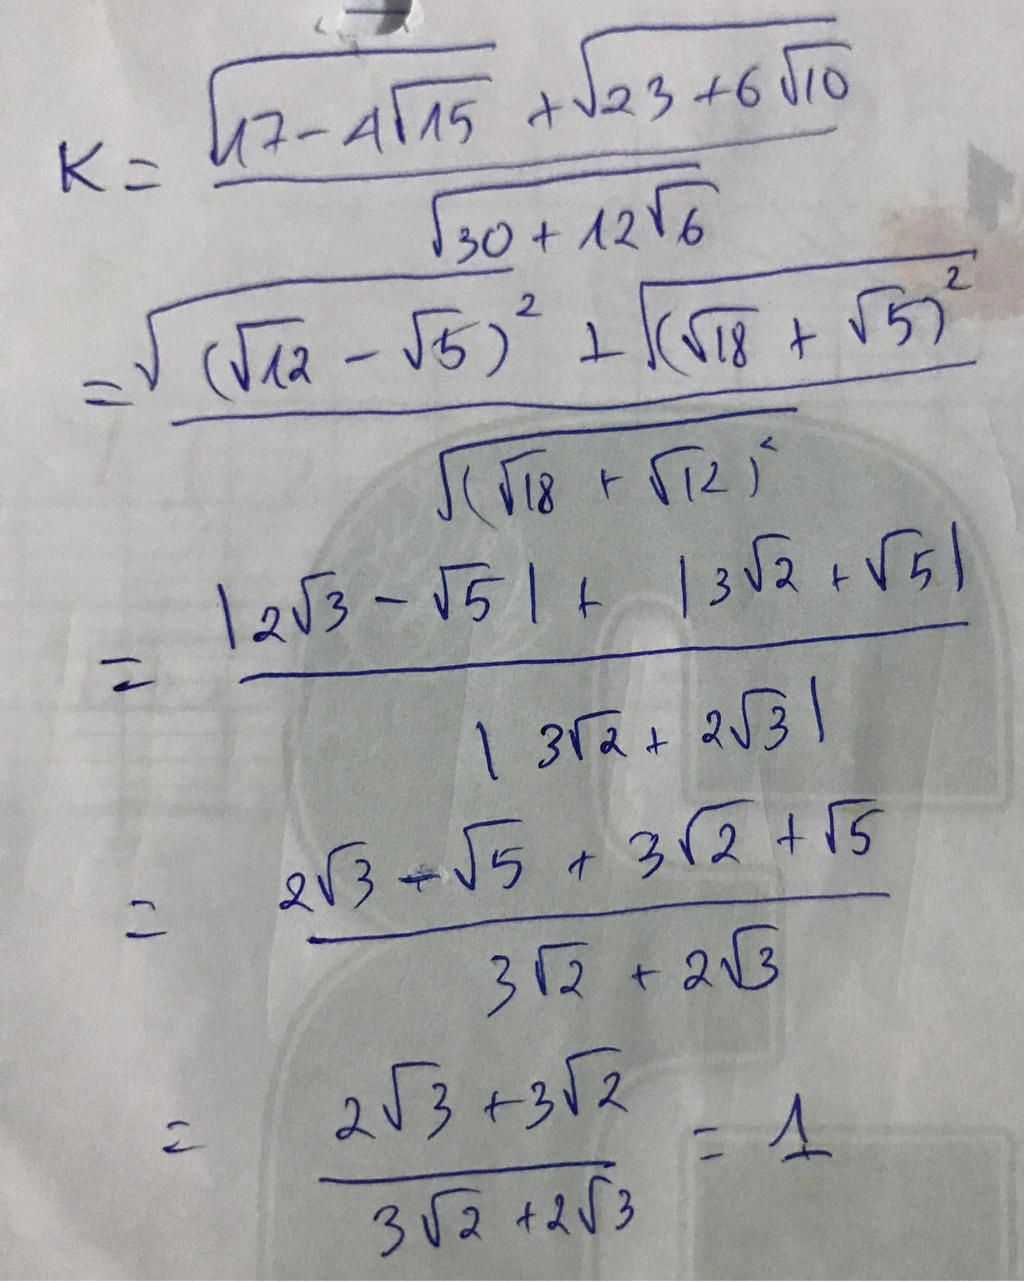 K = (√(17 - 4√15) + √(23 + 6√10)) / √(30 + 12√6)
= (√((√12 - √5)²) + √((√18 + √5)²)) / √((√18 + √12)²)
= (|2√3 - √5| + |3√2 + √5|) / |3√2 + 2√3|
= (2√3 - √5 + 3√2 + √5) / (3√2 + 2√3)
= (2√3 + 3√2) / (3√2 + 2√3) = 1